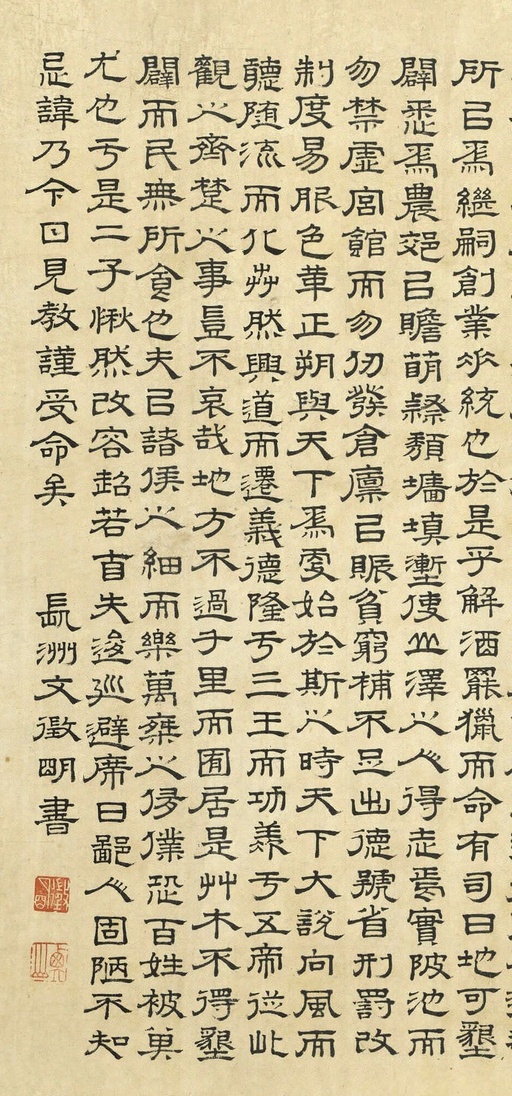 所㠯爲繼嗣創業垂統也於是乎解酒罷獵而命有司曰地可墾
闢悉爲農郊㠯贍萌隸頹墻填塹使山澤之人得至焉實陂池而
勿禁虛宮館而勿仞發倉廩㠯賑貧窮補不足出德號省刑罰改
制度易服色革正朔與天下爲更始於斯之時天下大說向風而
聽隨流而化芔然興道而遷義德隆于三王而功羨于五帝從此
觀之齊楚之事豈不哀哉地方不過千里而囿居是艸木不得墾
闢而民無所食也夫㠯諸侯之細而樂萬乘之侈僕恐百姓被其
尤也于是二子愀然改容超若自失逡巡避席曰鄙人固陋不知
忌諱乃今日見教謹受命矣 長洲文徵明書